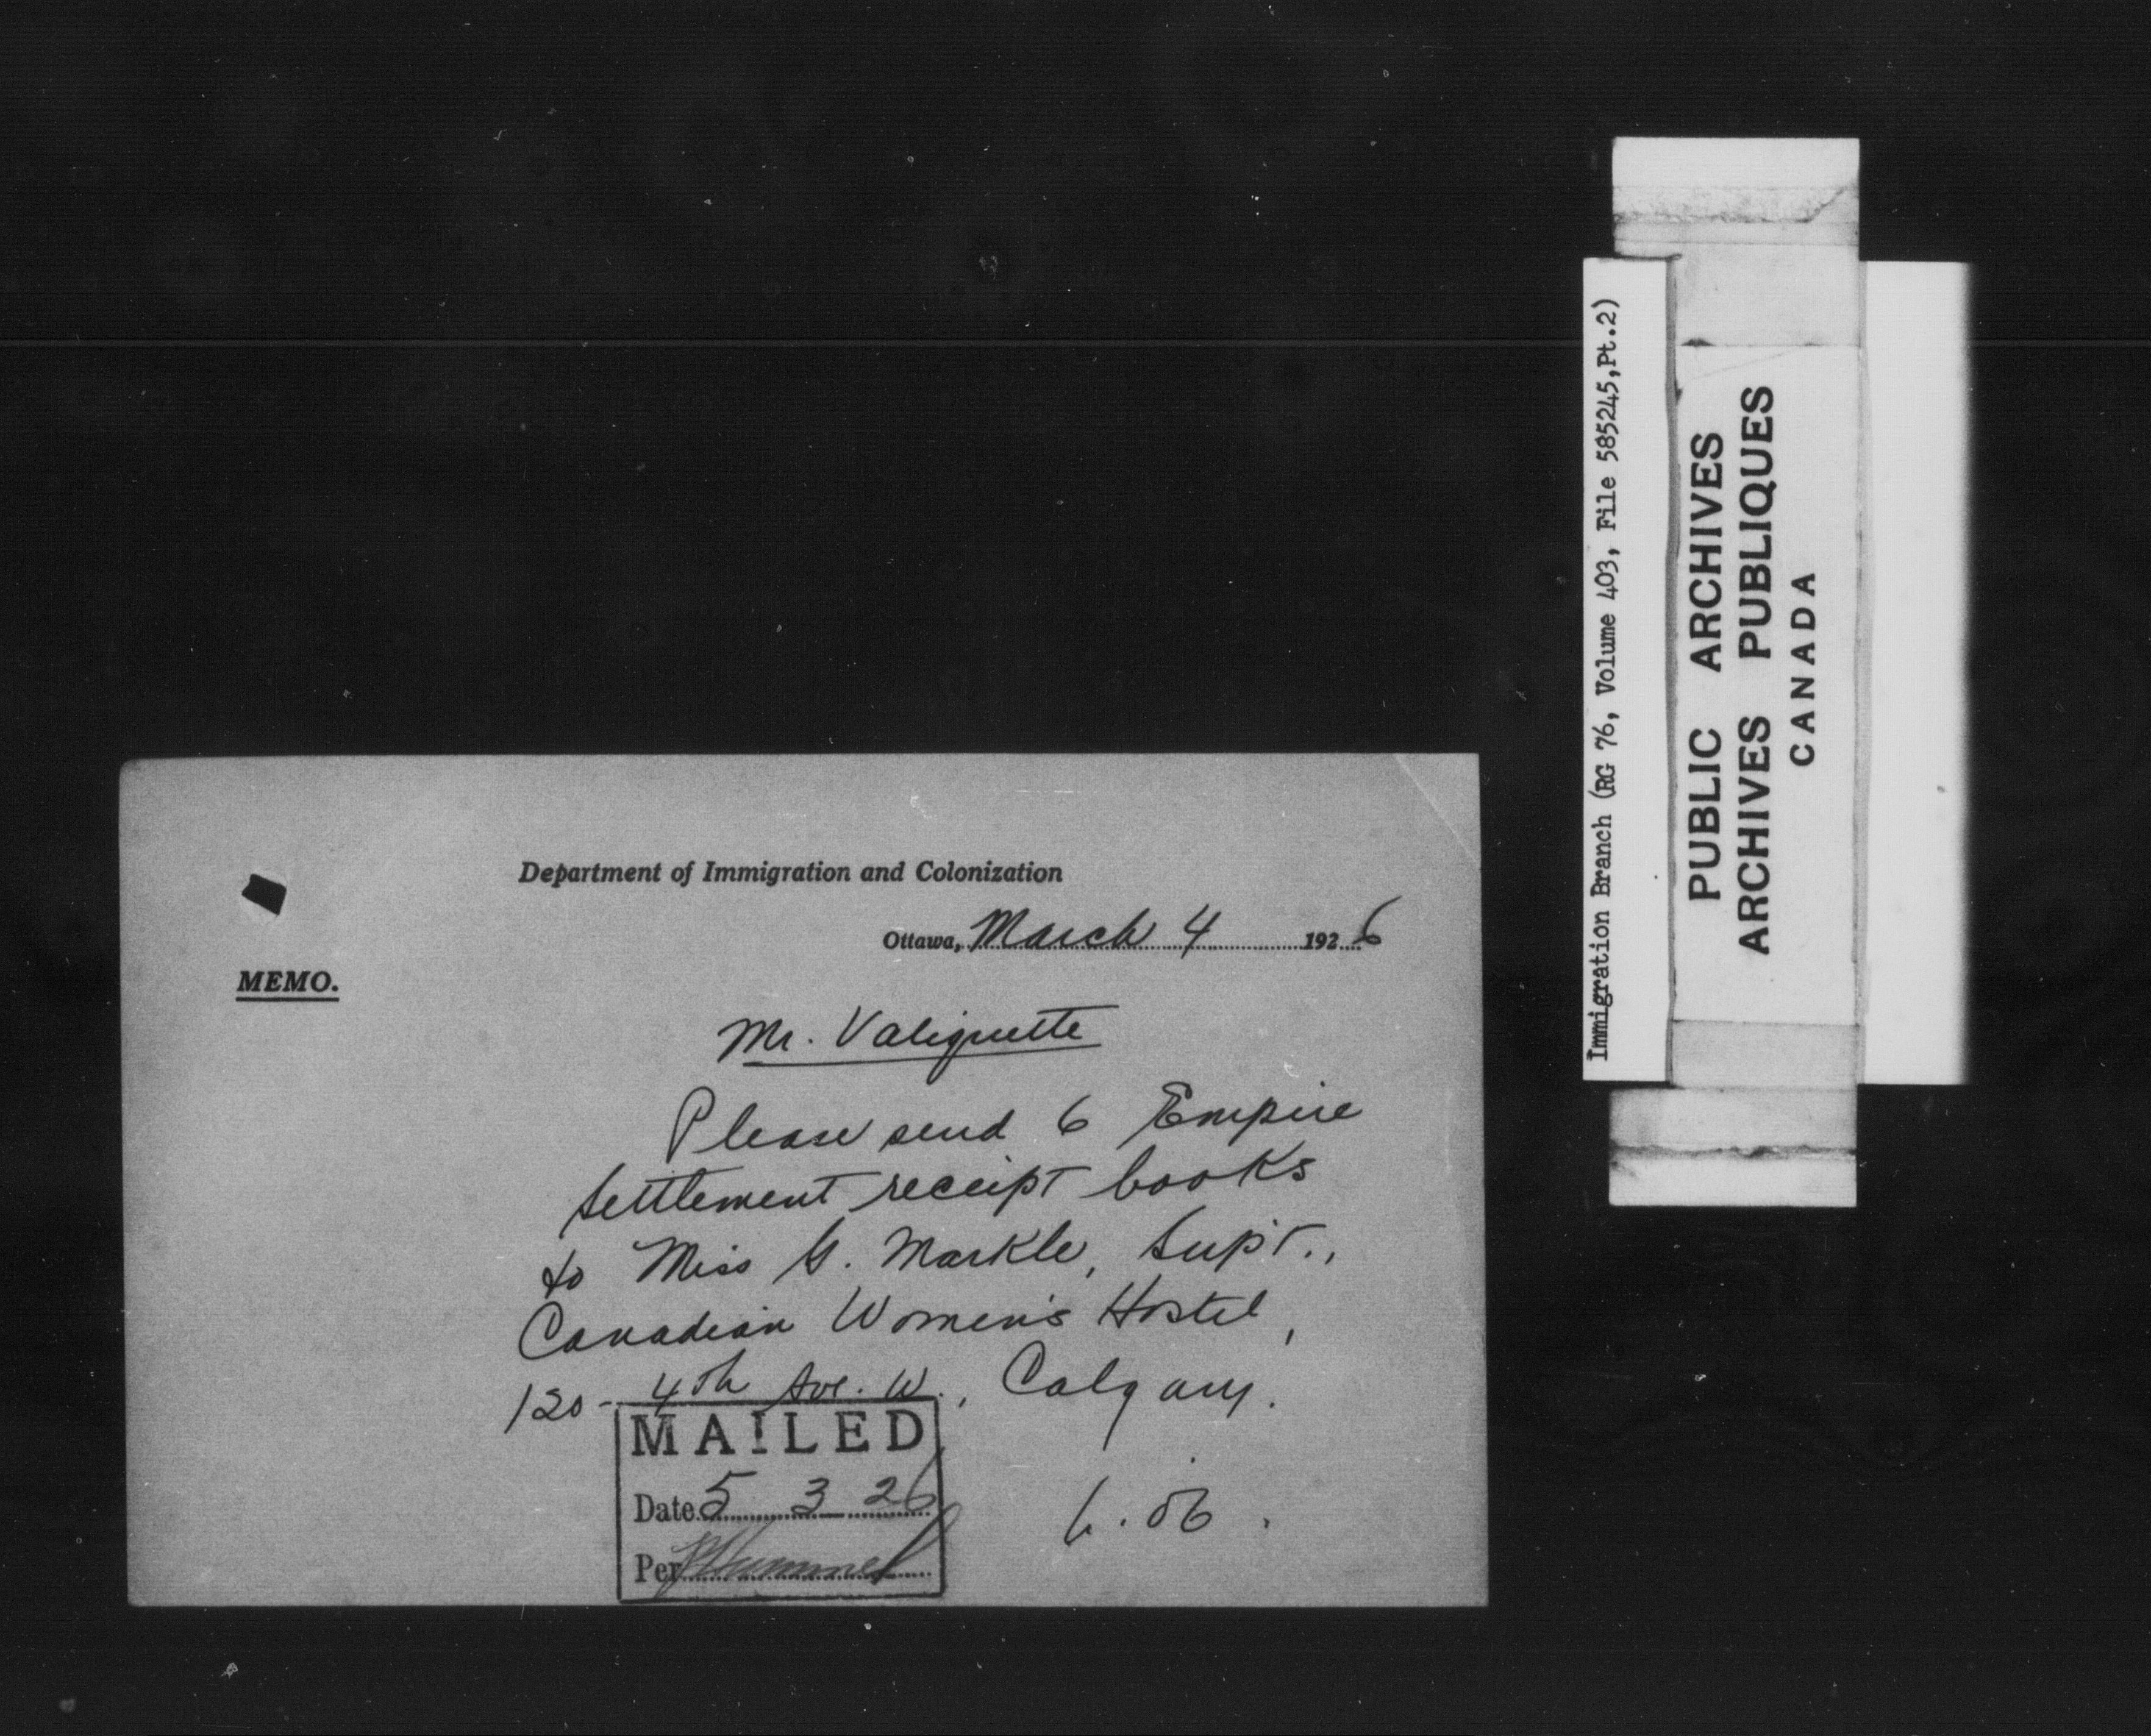 Department of Immigration and Colonization
Ottawa, March 4 1926
MEMO.
Mr. Valiquette
Please send 6 Empire
Settlement receipt books
to Miss G. Markle, Sup't.,
Canadian Women's Hostel,
120 - 4th Ave. W., Calgary.
MAILED
Date 5 3 26
Per
Immigration Branch (RG 76, Volume 403, File 585245,Pt.2)
PUBLIC ARCHIVES
ARCHIVES PUBLIQUES
CANADA